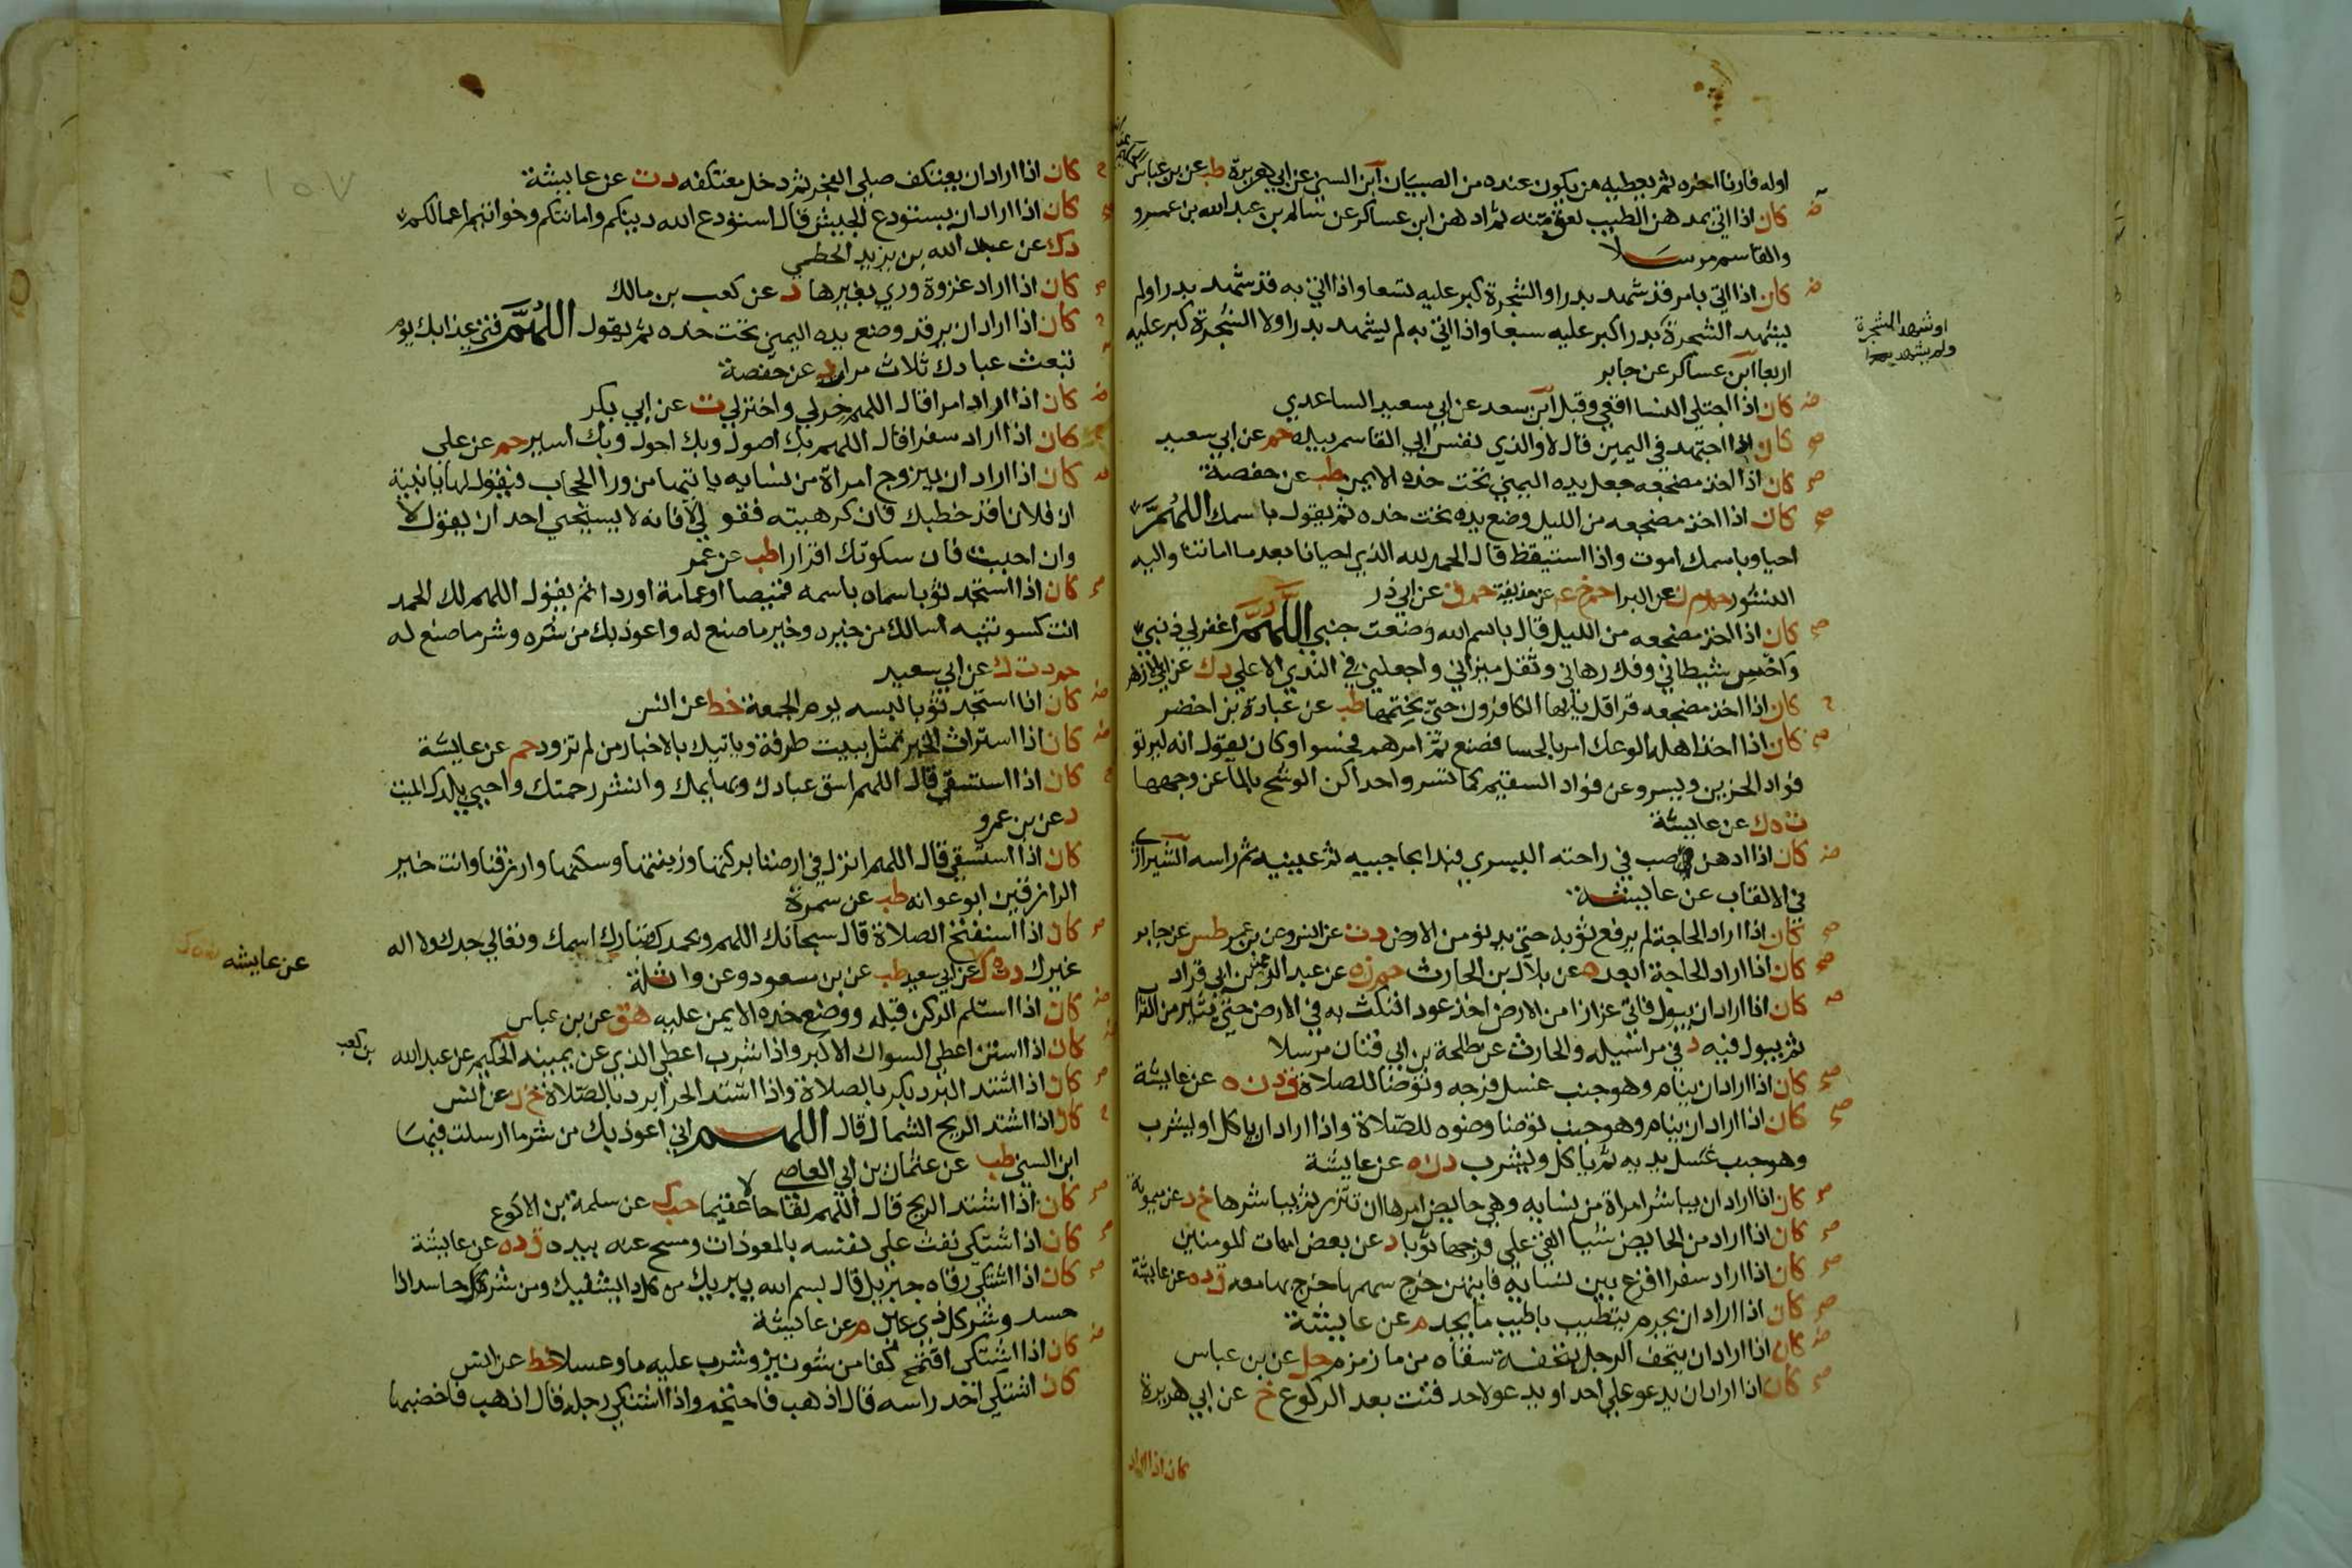 اوله فارنا اخره ثم يعطيه من يكون عنده من الصبيان ابن السني عن ابي هريرة طب عن بن عباس
كان اذا اتي بمدهن الطيب لعق منه ثم ادهن ابن عساكر عن سالم بن عبد الله بن عمرو
والقاسم مرسلا
كان اذا اتي بامر قد شهد بدرا والشجرة كبر عليه تسعا واذا اتي به قد شهد بدرا ولم
يشهد الشجرة بدرا كبر عليه سبعا واذا اتي به لم يشهد بدرا ولا الشجرة كبر عليه
او شهد الشجرة
ولم يشهد بدرا
اربعا ابن عساكر عن جابر
كان اذا اجتلي النسا اقعي وقبل ابن سعد عن ابي سعيد الساعدي
كان اذا اجتهد في اليمين قال لا والذي نفس ابي القاسم بيده حم عن ابي سعيد
كان اذا اخذ مضجعه جعل يده اليمني تحت خده الايمن طب عن حفصة
كان اذا اخذ مضجعه من الليل وضع يده تحت خده ثم يقول باسمك اللهم
احيا وباسمك اموت واذا استيقظ قال الحمد لله الذي احيانا بعد ما اماتنا واليه
النشور حم م ن عن البرا حم خ عه عن حذيفة حم ق عن ابي ذر
كان اذا اخذ مضجعه من الليل قال باسم الله وضعت جنبي اللهم اغفر لي ذنبي
واخس شيطاني وفك رهاني وثقل ميزاني واجعلني في الندي الاعلي د ك عن ابي الازهر
كان اذا اخذ مضجعه قرا قل يايها الكافرون حتي يختمها طب عن عبادة بن اخضر
كان اذا اخذ اهله الوعك امر بالحسا فصنع ثم امرهم فحسوا وكان يقول انه ليرتو
فواد الحزين ويسرو عن فواد السقيم كما تسرو احداكن الوسخ بالما عن وجهها
ت ه ك عن عايشة
كان اذا ادهن صب في راحته اليسري فبدا بحاجبيه ثم عينيه ثم راسه الشيرازي
في الالقاب عن عايشة
كان اذا اراد الحاجة لم يرفع ثوبه حتي يدنو من الارض د ت عن انس وعن بن عمر طس عن جابر
كان اذا اراد الحاجة ابعد ه عن بلال بن الحارث حم ن ه عن عبد الرحمن بن ابي قراد
كان اذا اراد ان يبول فاتي عزازا من الارض اخذ عودا فنكث به في الارض حتي يثير من التراب
ثم يبول فيه د في مراسيله والحارث عن طلحة بن ابي قنان مرسلا
كان اذا اراد ان ينام وهو جنب غسل فرجه وتوضا للصلاة ق د ن ه عن عايشة
كان اذا اراد ان ينام وهو جنب توضا وضوه للصلاة واذا اراد ان ياكل او يشرب
وهو جنب غسل يديه ثم ياكل ويشرب د ن ه عن عايشة
كان اذا اراد ان يباشر امراة من نسايه وهي حايض امرها ان تتزر ثم يباشرها خ د عن ميمونة
كان اذا اراد من الحايض شيا القي علي فرجها ثوبا د عن بعض امهات المومنين
كان اذا اراد سفرا اقرع بين نسايه فايتهن خرج سهمها خرج بها معه ق د ه عن عايشة
كان اذا اراد ان يحرم يتطيب باطيب ما يجد م عن عايشة
كان اذا اراد ان يتحف الرجل بتحفة سقاه من ما زمزم حل عن بن عباس
كان اذا اراد ان يدعو علي احد او يدعو لاحد قنت بعد الركوع خ عن ابي هريرة
كان اذا اراد
كان اذا اراد ان يعتكف صلي الفجر ثم دخل معتكفه د ت عن عايشة
كان اذا اراد ان يستودع الجيش قال استودع الله دينكم وامانتكم وخواتيم اعمالكم
د ك عن عبد الله بن يزيد الخطمي
كان اذا اراد غزوة وري بغيرها د عن كعب بن مالك
كان اذا اراد ان يرقد وضع يده اليمين تحت خده ثم يقول اللهم قني عذابك يوم
تبعث عبادك ثلاث مرار د عن حفصة
كان اذا اراد امرا قال اللهم خر لي واختر لي ت عن ابي بكر
كان اذا اراد سفرا قال اللهم بك اصول وبك احول وبك اسير حم عن علي
كان اذا اراد ان يزوج امراة من نسايه ياتيها من ورا الحجاب فيقول لها يا بنية
ان فلانا قد خطبك فان كرهتيه فقولي لا فانه لا يستحي احد ان يقول لا
وان احببت فان سكوتك اقرارا طب عن عمر
كان اذا استجد ثوبا سماه باسمه قميصا او عمامة او ردا ثم يقول اللهم لك الحمد
انت كسوتنيه اسالك من خيره وخير ما صنع له واعوذ بك من شره وشر ما صنع له
حم د ت ك عن ابي سعيد
كان اذا استجد ثوبا لبسه يوم الجمعة خط عن انس
كان اذا استراث الخبر تمثل ببيت طرفة وياتيك بالاخبار من لم تزود حم عن عايشة
كان اذا استسقي قال اللهم اسق عبادك وبهايمك وانشر رحمتك واحيي بلدك الميت
د عن بن عمرو
كان اذا استسقي قال اللهم انزل في ارضنا بركتها وزينتها وسكنها وارزقنا وانت خير
الرازقين ابو عوانه طب عن سمرة
كان اذا استفتح الصلاة قال سبحانك اللهم وبحمدك وتبارك اسمك وتعالي جدك ولا اله
عن عايشه
غيرك عن ابي سعيد طب عن بن مسعود وعن واثلة
كان اذا استلم الركن قبله ووضع خده الايمن عليه هق عن بن عباس
كان اذا استن اعطي السواك الاكبر واذا شرب اعطي الذي عن يمينه الحكيم عن عبد الله
بن كعب
كان اذا اشتد البرد بكر بالصلاة واذا اشتد الحر ابرد بالصلاة خ ن عن انس
كان اذا اشتد الريح الشمال قال اللهم اني اعوذ بك من شر ما ارسلت فيها
ابن السني طب عن عثمان بن ابي العاصي
كان اذا اشتد الريح قال اللهم لقاحا لا عقيما حب ك عن سلمة بن الاكوع
كان اذا اشتكي نفث علي نفسه بالمعوذات ومسح عنه بيده ق د ه عن عايشة
كان اذا اشتكي رقاه جبريل قال بسم الله يبريك من كل دا يشفيك ومن شر كل حاسد اذا
حسد وشر كل ذي عين م عن عايشة
كان اذا اشتكي اقتمح كفا من شونيز وشرب عليه ما وعسلا خط عن انس
كان اشتكي احد راسه قال اذهب فاحتجم واذا اشتكي رجله قال اذهب فاخضبها